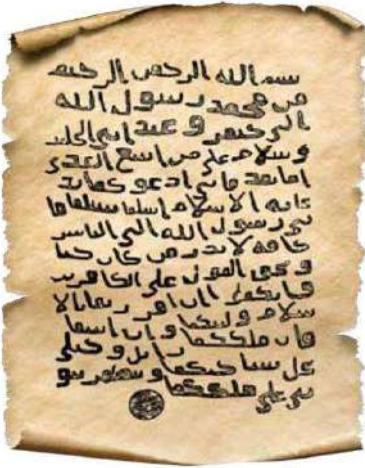 بسم الله الرحمن الرحيم
من محمد رسول الله
الى جيفر و عبد ابنى الجلند
وسلام على من اتبع الهدى
اما بعد فانى ادعوكما بد
عايه الاسلام اسلما تسلما فا
نى رسول الله الى الناس
كافه لانذر من كان حيا
و يحق القول على الكافرين
فانكما ان اقررتما بالا
سلام وليتكما وان ابيتما
فان ملككما زايل و خيلى
تحل بساحتكما و تظهر نبو
تى على ملككما